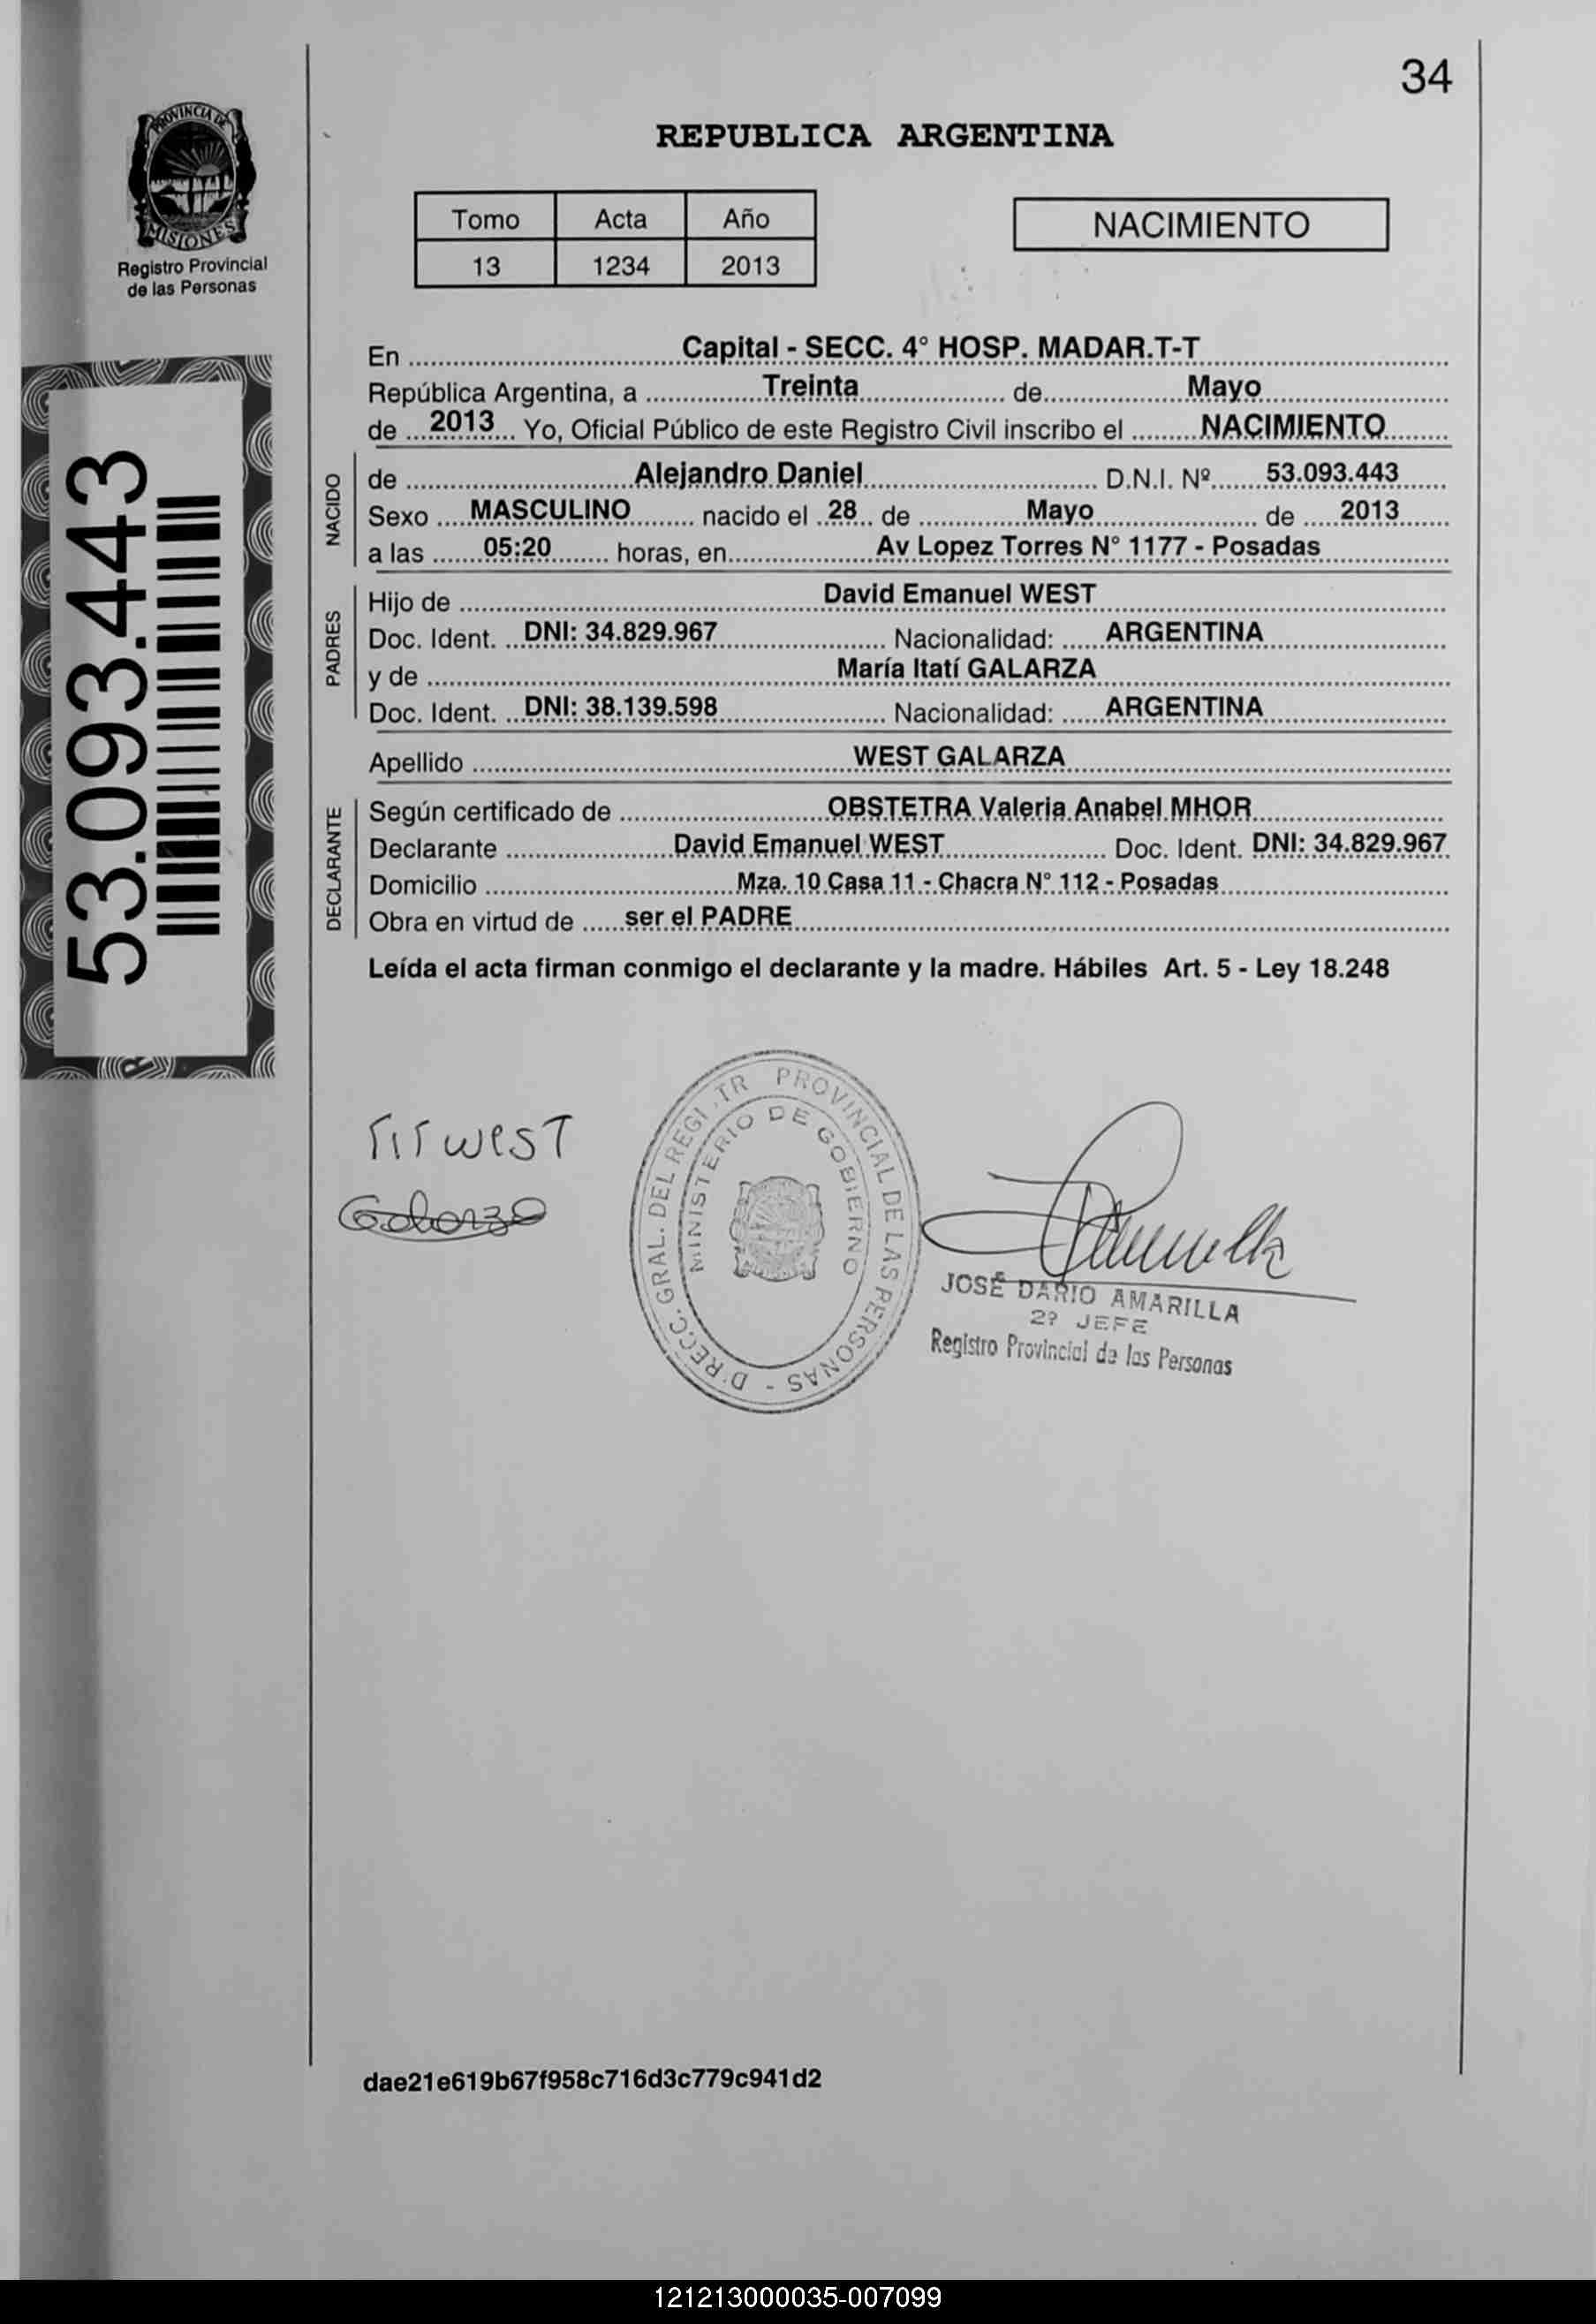 34
PROVINCIA DE
MISIONES
Registro Provincial
de las Personas
REPUBLICA ARGENTINA
Tomo Acta Año
13 1234 2013
NACIMIENTO
53.093.443
En Capital - SECC. 4° HOSP. MADAR.T-T
República Argentina, a Treinta de Mayo
de 2013 Yo, Oficial Público de este Registro Civil inscribo el NACIMIENTO
NACIDO
de Alejandro Daniel D.N.I. Nº 53.093.443
Sexo MASCULINO nacido el 28 de Mayo de 2013
a las 05:20 horas, en Av Lopez Torres N° 1177 - Posadas
PADRES
Hijo de David Emanuel WEST
Doc. Ident. DNI: 34.829.967 Nacionalidad: ARGENTINA
y de María Itatí GALARZA
Doc. Ident. DNI: 38.139.598 Nacionalidad: ARGENTINA
Apellido WEST GALARZA
DECLARANTE
Según certificado de OBSTETRA Valeria Anabel MHOR
Declarante David Emanuel WEST Doc. Ident. DNI: 34.829.967
Domicilio Mza. 10 Casa 11 - Chacra N° 112 - Posadas
Obra en virtud de ser el PADRE
Leída el acta firman conmigo el declarante y la madre. Hábiles Art. 5 - Ley 18.248
west
PROVINCIAL DE LAS PERSONAS -
GRAL. DEL
MINISTERIO DE GOBIERNO
JOSÉ DARIO AMARILLA
2º JEFE
Registro Provincial de las Personas
dae21e619b67f958c716d3c779c941d2
121213000035-007099